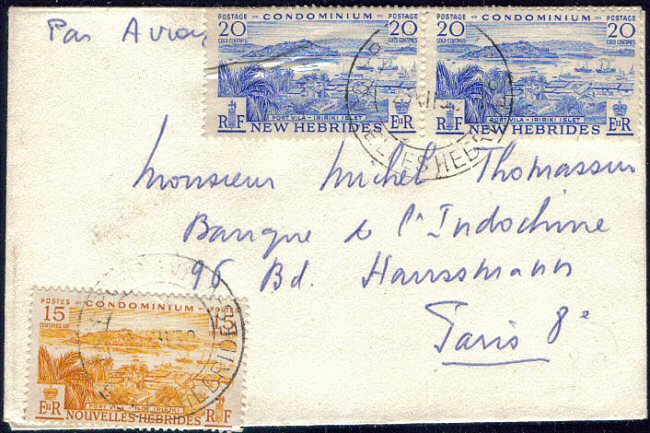 Par Avion
POSTAGE CONDOMINIUM POSTAGE
20 20
GOLD CENTIMES GOLD CENTIMES
PORT VILA - IRIRIKI ISLET
RF NEW HEBRIDES EIIR
POSTAGE CONDOMINIUM POSTAGE
20 20
GOLD CENTIMES GOLD CENTIMES
PORT VILA - IRIRIKI ISLET
RF NEW HEBRIDES EIIR
Monsieur Michel Thomassin
Banque de l'Indochine
96 Bd. Haussmann
Paris 8e
POSTES CONDOMINIUM
15 15
CENTIMES OR
PORT VILA - ILOT IRIRIKI
EIIR NOUVELLES HEBRIDES RF